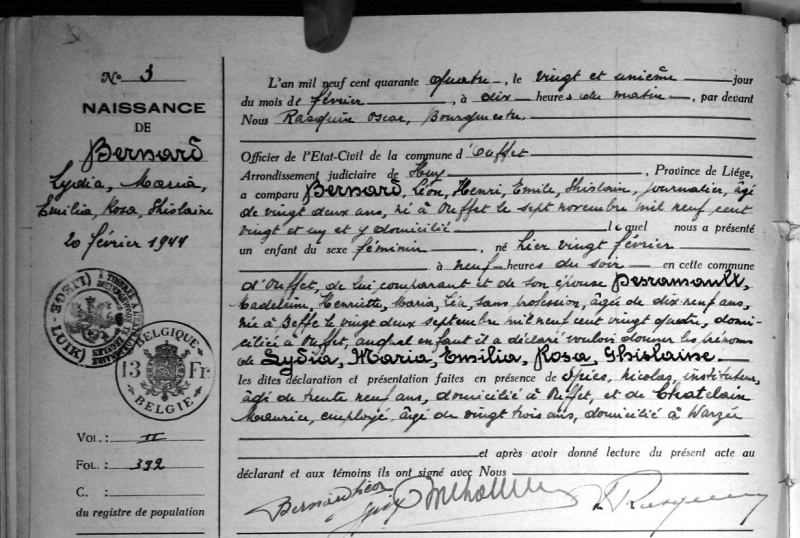 No 3
NAISSANCE
DE
Bernard
Lydia, Maria,
Emilia, Rosa, Ghislaine
20 février 1944
LIEGE-LUIK
BELGIQUE
13 Fr
BELGIE
Vol : II
Fol : 392
C. :
du registre de population
L'an mil neuf cent quarante quatre, le vingt et unième jour
du mois de février, à dix heures du matin, par devant
Nous Rasquin Oscar, Bourgmestre.
Officier de l'Etat-Civil de la commune d'Ouffet
Arrondissement judiciaire de Huy, Province de Liége,
a comparu Bernard, Léon, Henri, Emile, Ghislain, journalier, âgé
de vingt deux ans, né à Ouffet le sept novembre mil neuf cent
vingt et un et y domicilié lequel nous a présenté
un enfant du sexe féminin, né hier vingt février
à neuf heures du soir en cette commune
d'Ouffet, de lui comparant et de son épouse Desramault,
Madeleine, Henriette, Maria, Léa, sans profession, âgée de dix neuf ans,
née à Beffe le vingt deux septembre mil neuf cent vingt quatre, domi-
ciliée à Ouffet, auquel enfant il a déclaré vouloir donner les prénoms
de Lydia, Maria, Emilia, Rosa, Ghislaine.
les dites déclaration et présentation faites en présence de Spies, Nicolas, instituteur,
âgé de trente neuf ans, domicilié à Ouffet, et de Chatelain
Maurice, employé, âgé de vingt trois ans, domicilié à Warzée
et après avoir donné lecture du présent acte au
déclarant et aux témoins ils ont signé avec Nous
Bernard Léon
Spies
Rasquin